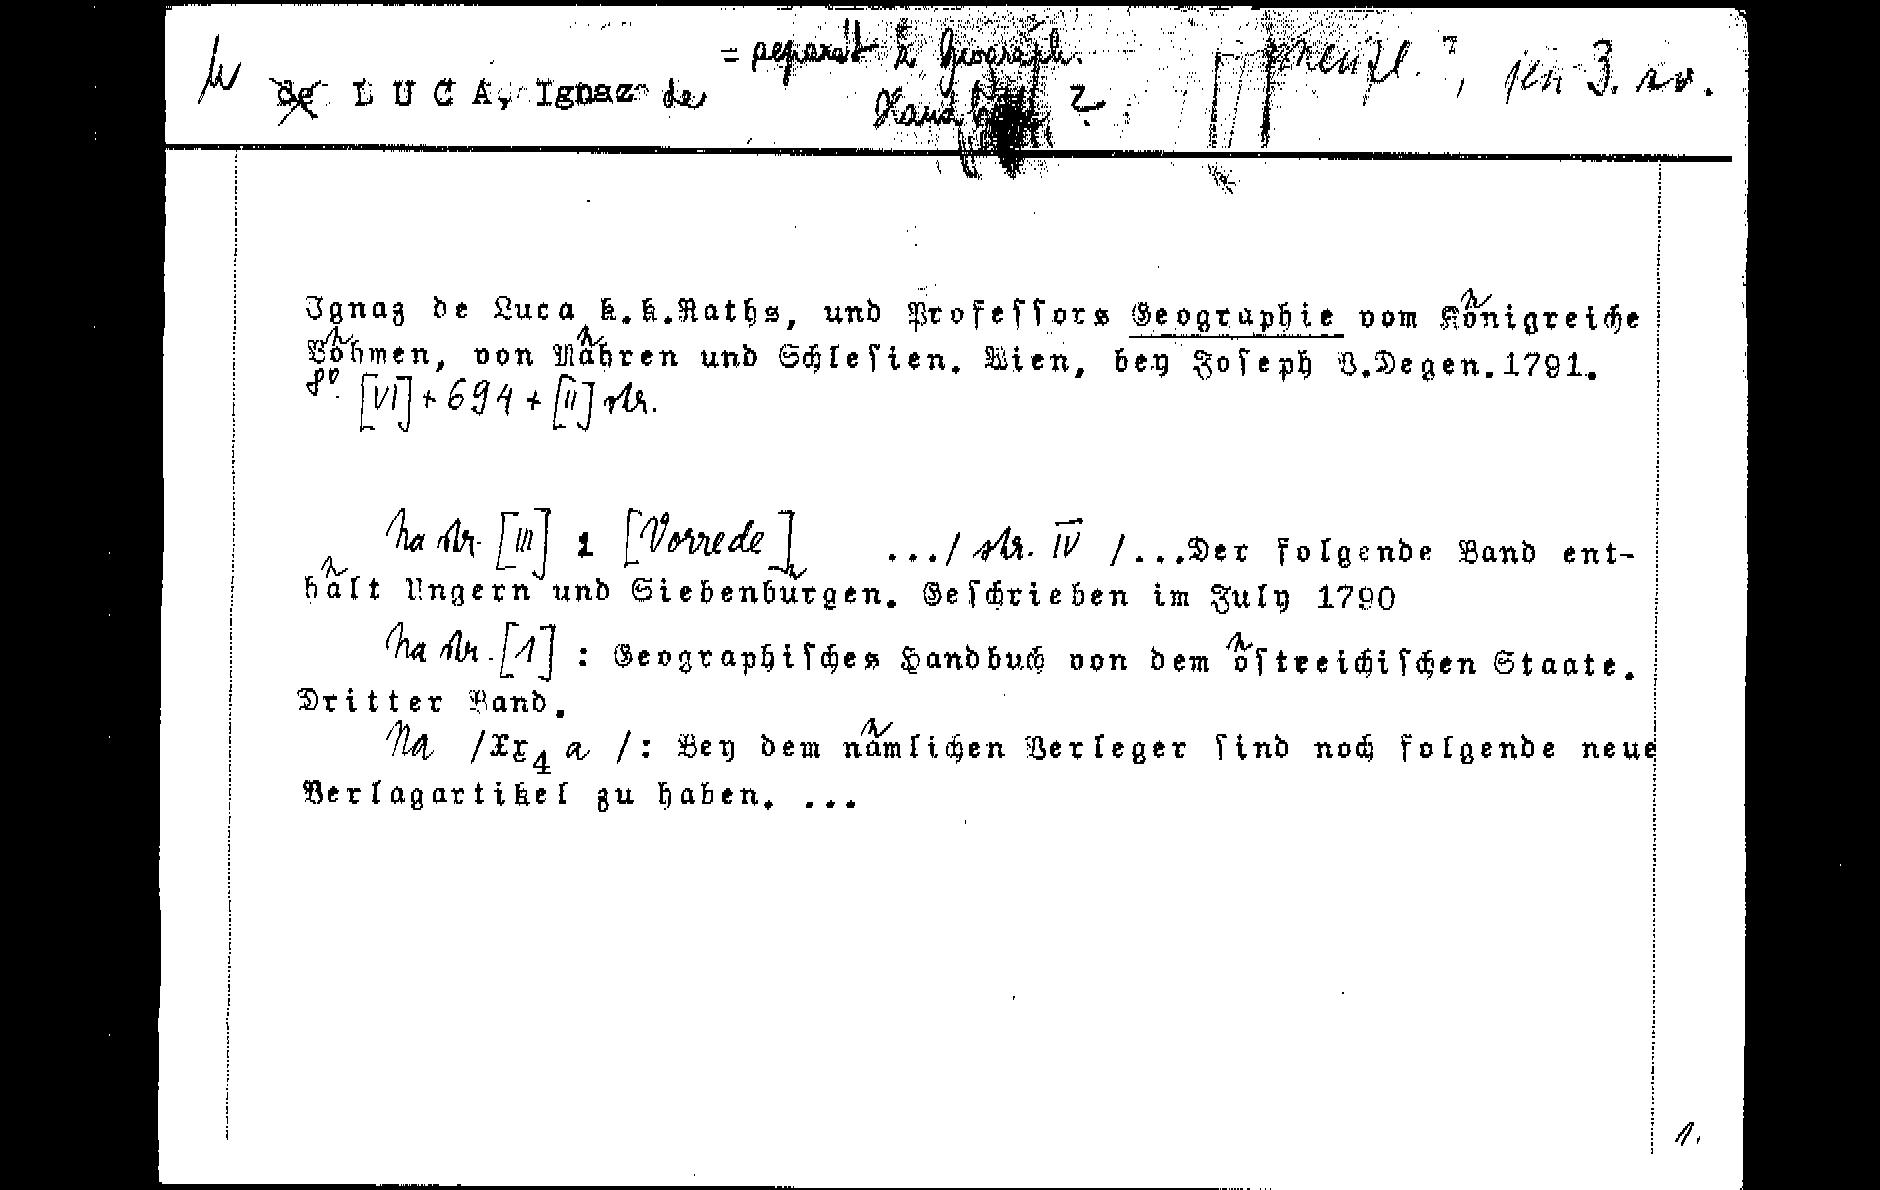 de LUCA, Ignaz de
= separát z Geograph.
Handb. ?
, jen 3. sv.
Ignaz de Luca k.k.Raths, und Professors Geographie vom Königreiche
Böhmen, von Mähren und Schlesien. Wien, bey Joseph V.Degen.1791.
8º. [VI] + 694 + [II] str.
Na str. [III] : [Vorrede] .../ str. IV /...Der folgende Band ent-
hält Ungern und Siebenbürgen. Geschrieben im July 1790
Na str. [1] : Geographisches Handbuch von dem östreichischen Staate.
Dritter Band.
Na /Xx4 a /: Bey dem nämlichen Verleger sind noch folgende neue
Verlagartikel zu haben. ...
1.